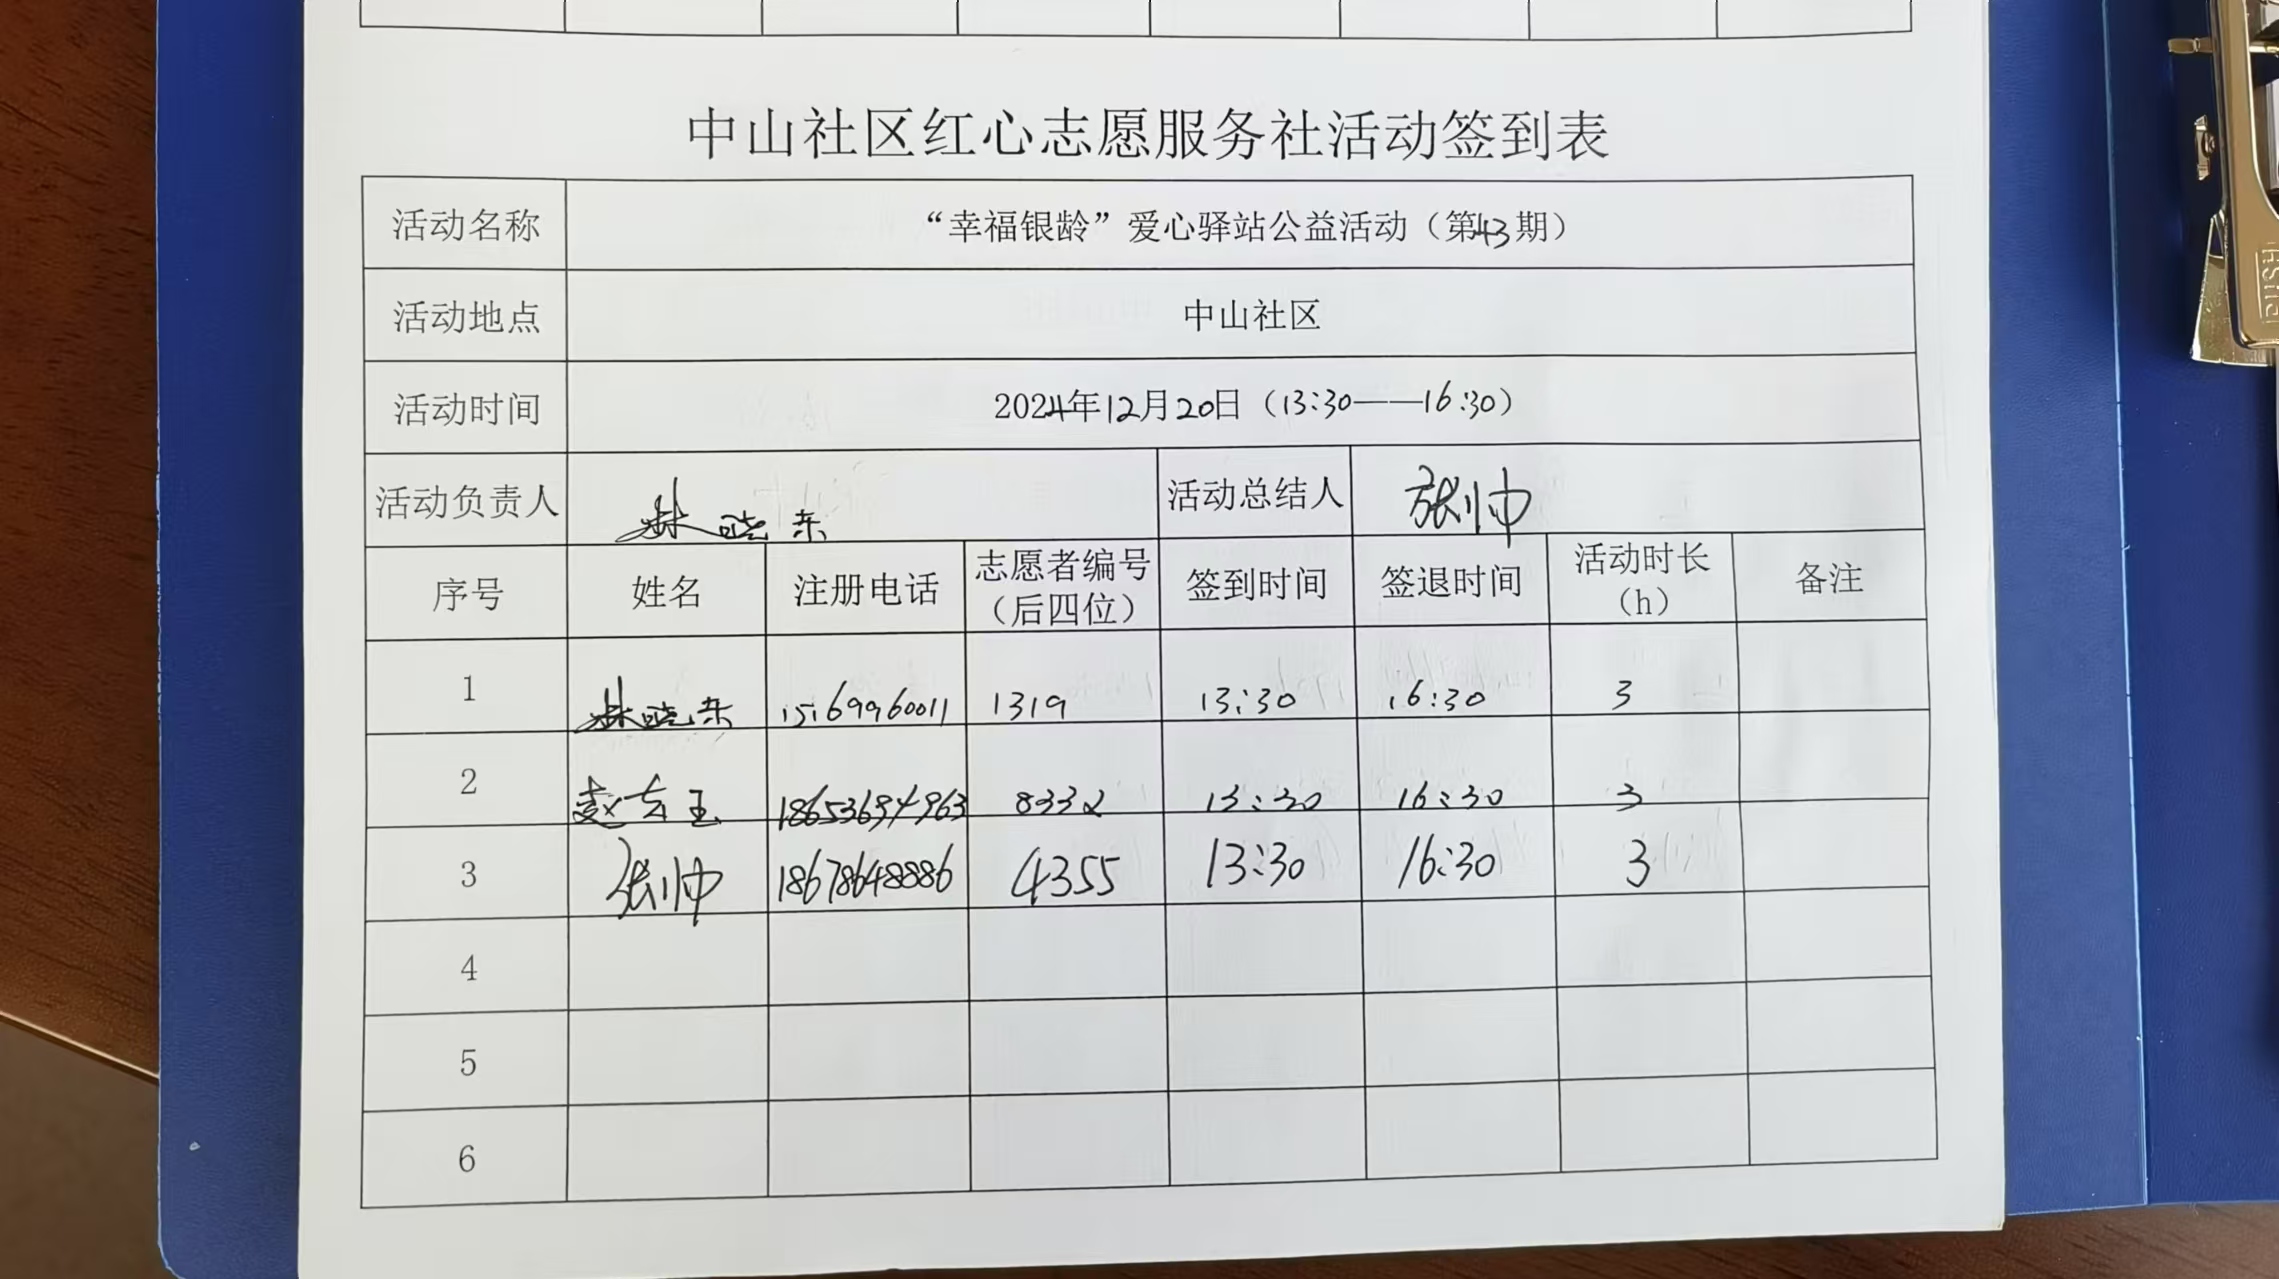 中山社区红心志愿服务社活动签到表
活动名称 “幸福银龄”爱心驿站公益活动（第43期）
活动地点 中山社区
活动时间 2024年12月20日（13:30——16:30）
活动负责人 林晓东 活动总结人 张帅
序号 姓名 注册电话 志愿者编号（后四位） 签到时间 签退时间 活动时长（h） 备注
1 林晓东 15169960011 1319 13:30 16:30 3
2 赵 玉 18653694963 8332 13:30 16:30 3
3 张帅 18678648886 4355 13:30 16:30 3
4
5
6